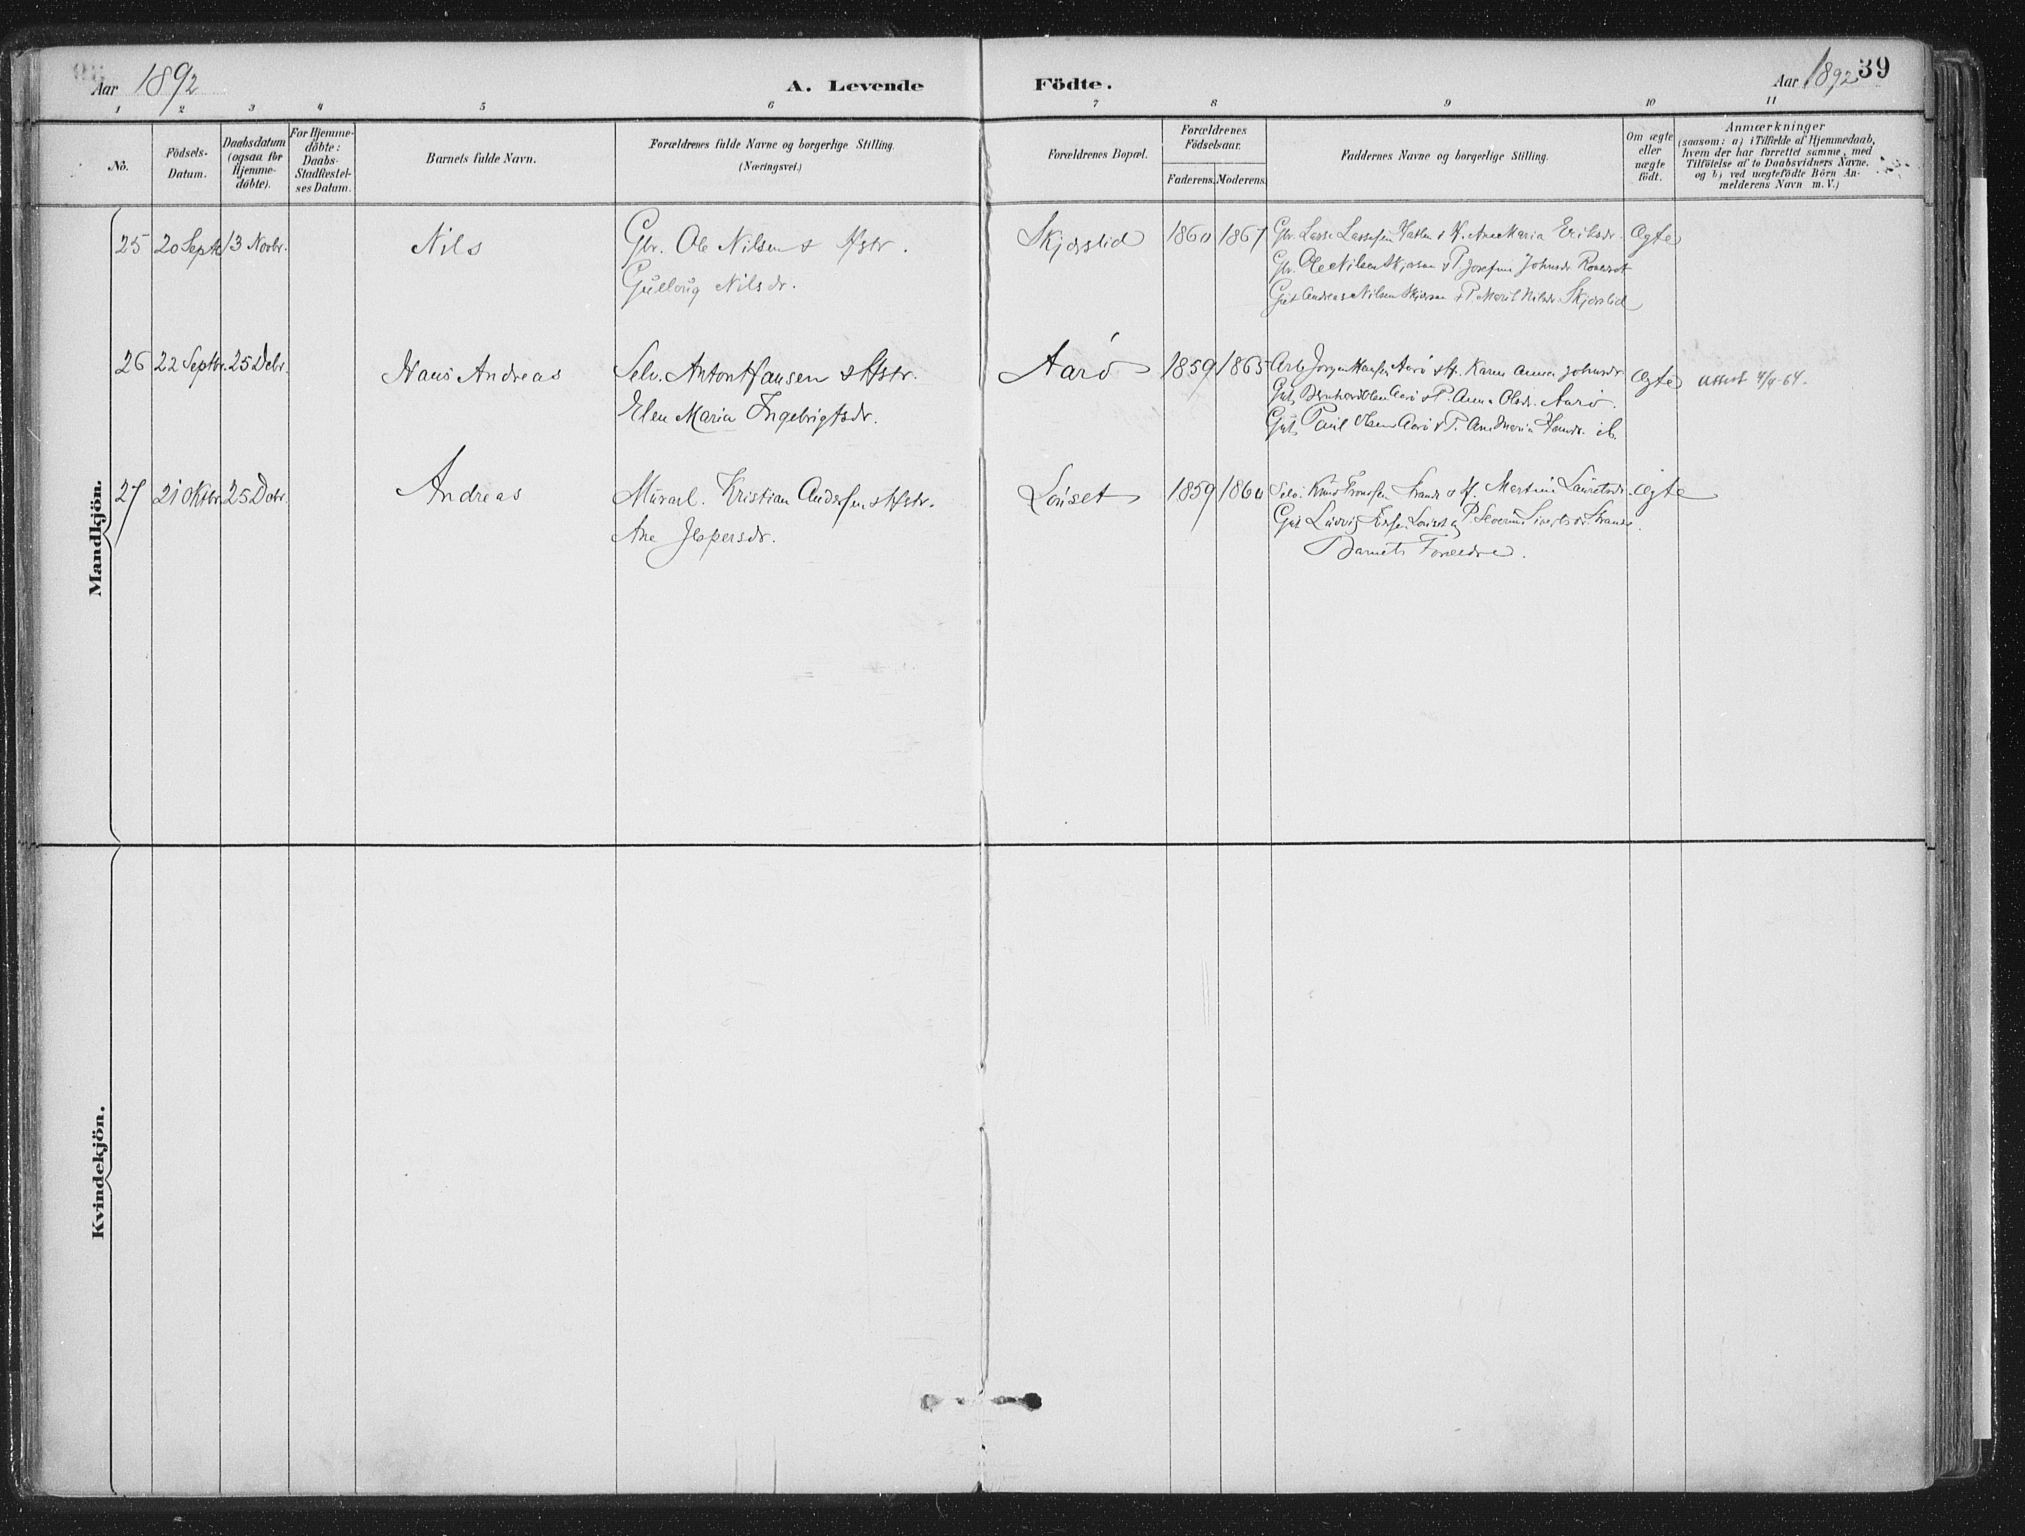 Aar 1892
A. Levende Födte.
Aar 1892
39
1 2 3 4 5 6 7 8 9 10 11
No.
Födsels-Datum.
Daabsdatum (ogsaa for Hjemme-döbte).
For Hjemme-döbte: Daabs-Stadfæstel-ses Datum.
Barnets fulde Navn.
Forældrenes fulde Navne og borgerlige Stilling.
(Næringsvei.)
Forældrenes Bopæl.
Forældrenes Födselsaar.
Faderens. Moderens.
Faddernes Navne og borgerlige Stilling.
Om ægte eller uægte födt.
Anmærkninger
(saasom: a) i Tilfælde af Hjemmedaab,
hvem der har forrettet samme, med
Tilföielse af to Daabsvidners Navne.
og b) ved uægtefödte Börn An-
melderens Navn m. V.)
Mandkjön.
25 20 Septb 13 Novbr. Nils Gbr. Ole Nilsen & Hstr. Skjorslid 1860 1867 Gbr. Lasse Lassesen & H. Ane Maria Eriksdr. Ægte
Gullaug Nilsdr. Gbr. Ole Nilsen & P. Josefine Johnsdr
Gut Andreas Nilsen & P. Marit Nilsdr Skjorslid
26 22 Septbr. 25 Debr. Hans Andreas Selv. Anton Hansen & Hstr. Aarö 1859 1865 Arb Jörgen Hansen Aarö & H. Karen Anna Johnsdr. Ægte attest 4/9-64.
Elen Maria Ingebrigtsdr. Gut Bernhard Olsen Aarö & P. Anna Olsdr. Aarö.
Gut Paul Olsen Aarö & P. Ane Maria Hansdr. ib.
27 21 Oktbr. 25 Debr. Andreas Murarb. Kristian Andersen & Hstr. Löiset 1859 1860 Selv. Knud Tronsen Strand & H. Mertine Lauritsdr. Ægte
Ane Jespersdr. Gut Ludvig Löiset og P. Severine Sivertsdr. Strand.
Barnets Forældre.
Kvindekjön.